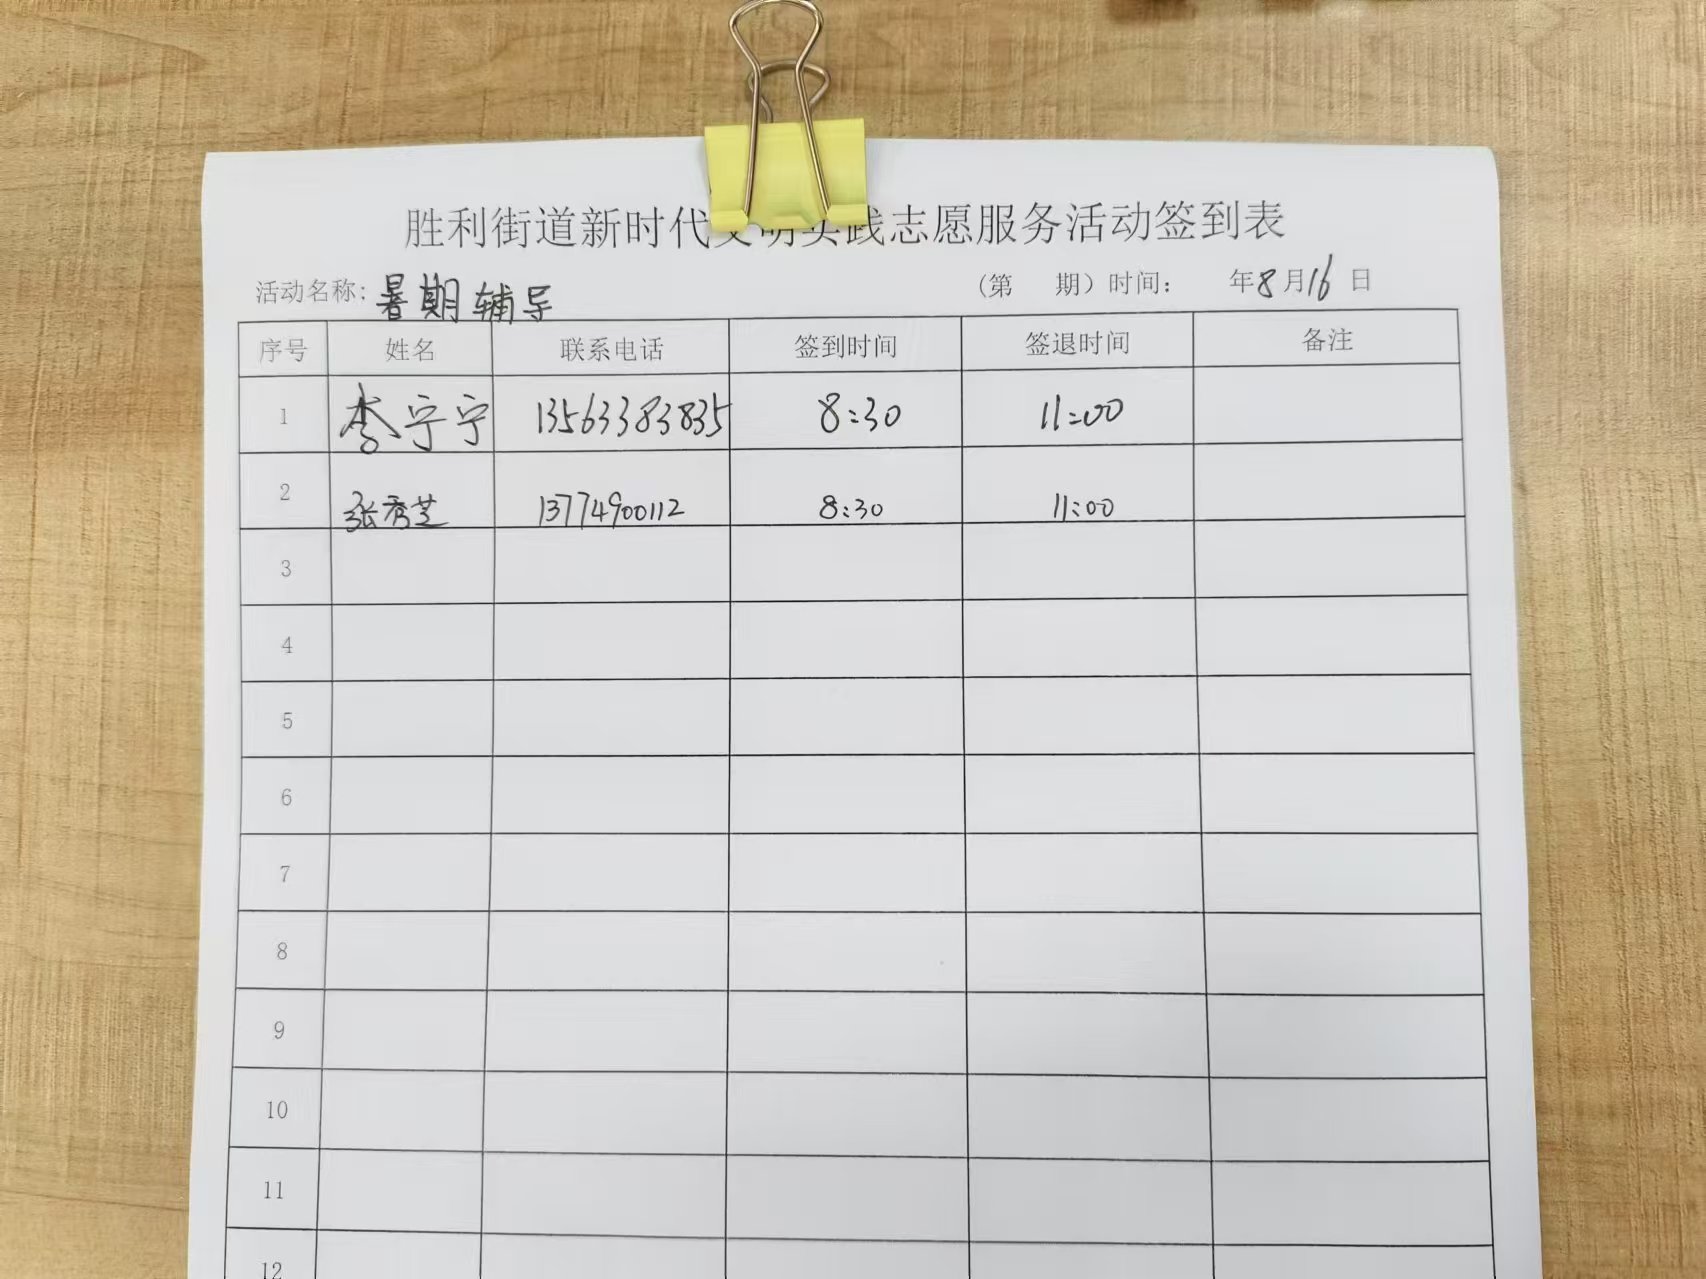 胜利街道新时代文明实践志愿服务活动签到表
活动名称: 暑期辅导 (第 期) 时间: 年8月16日
序号 姓名 联系电话 签到时间 签退时间 备注
1 李宁宁 13563383835 8:30 11:00
2 张秀芝 13774900112 8:30 11:00
3
4
5
6
7
8
9
10
11
12